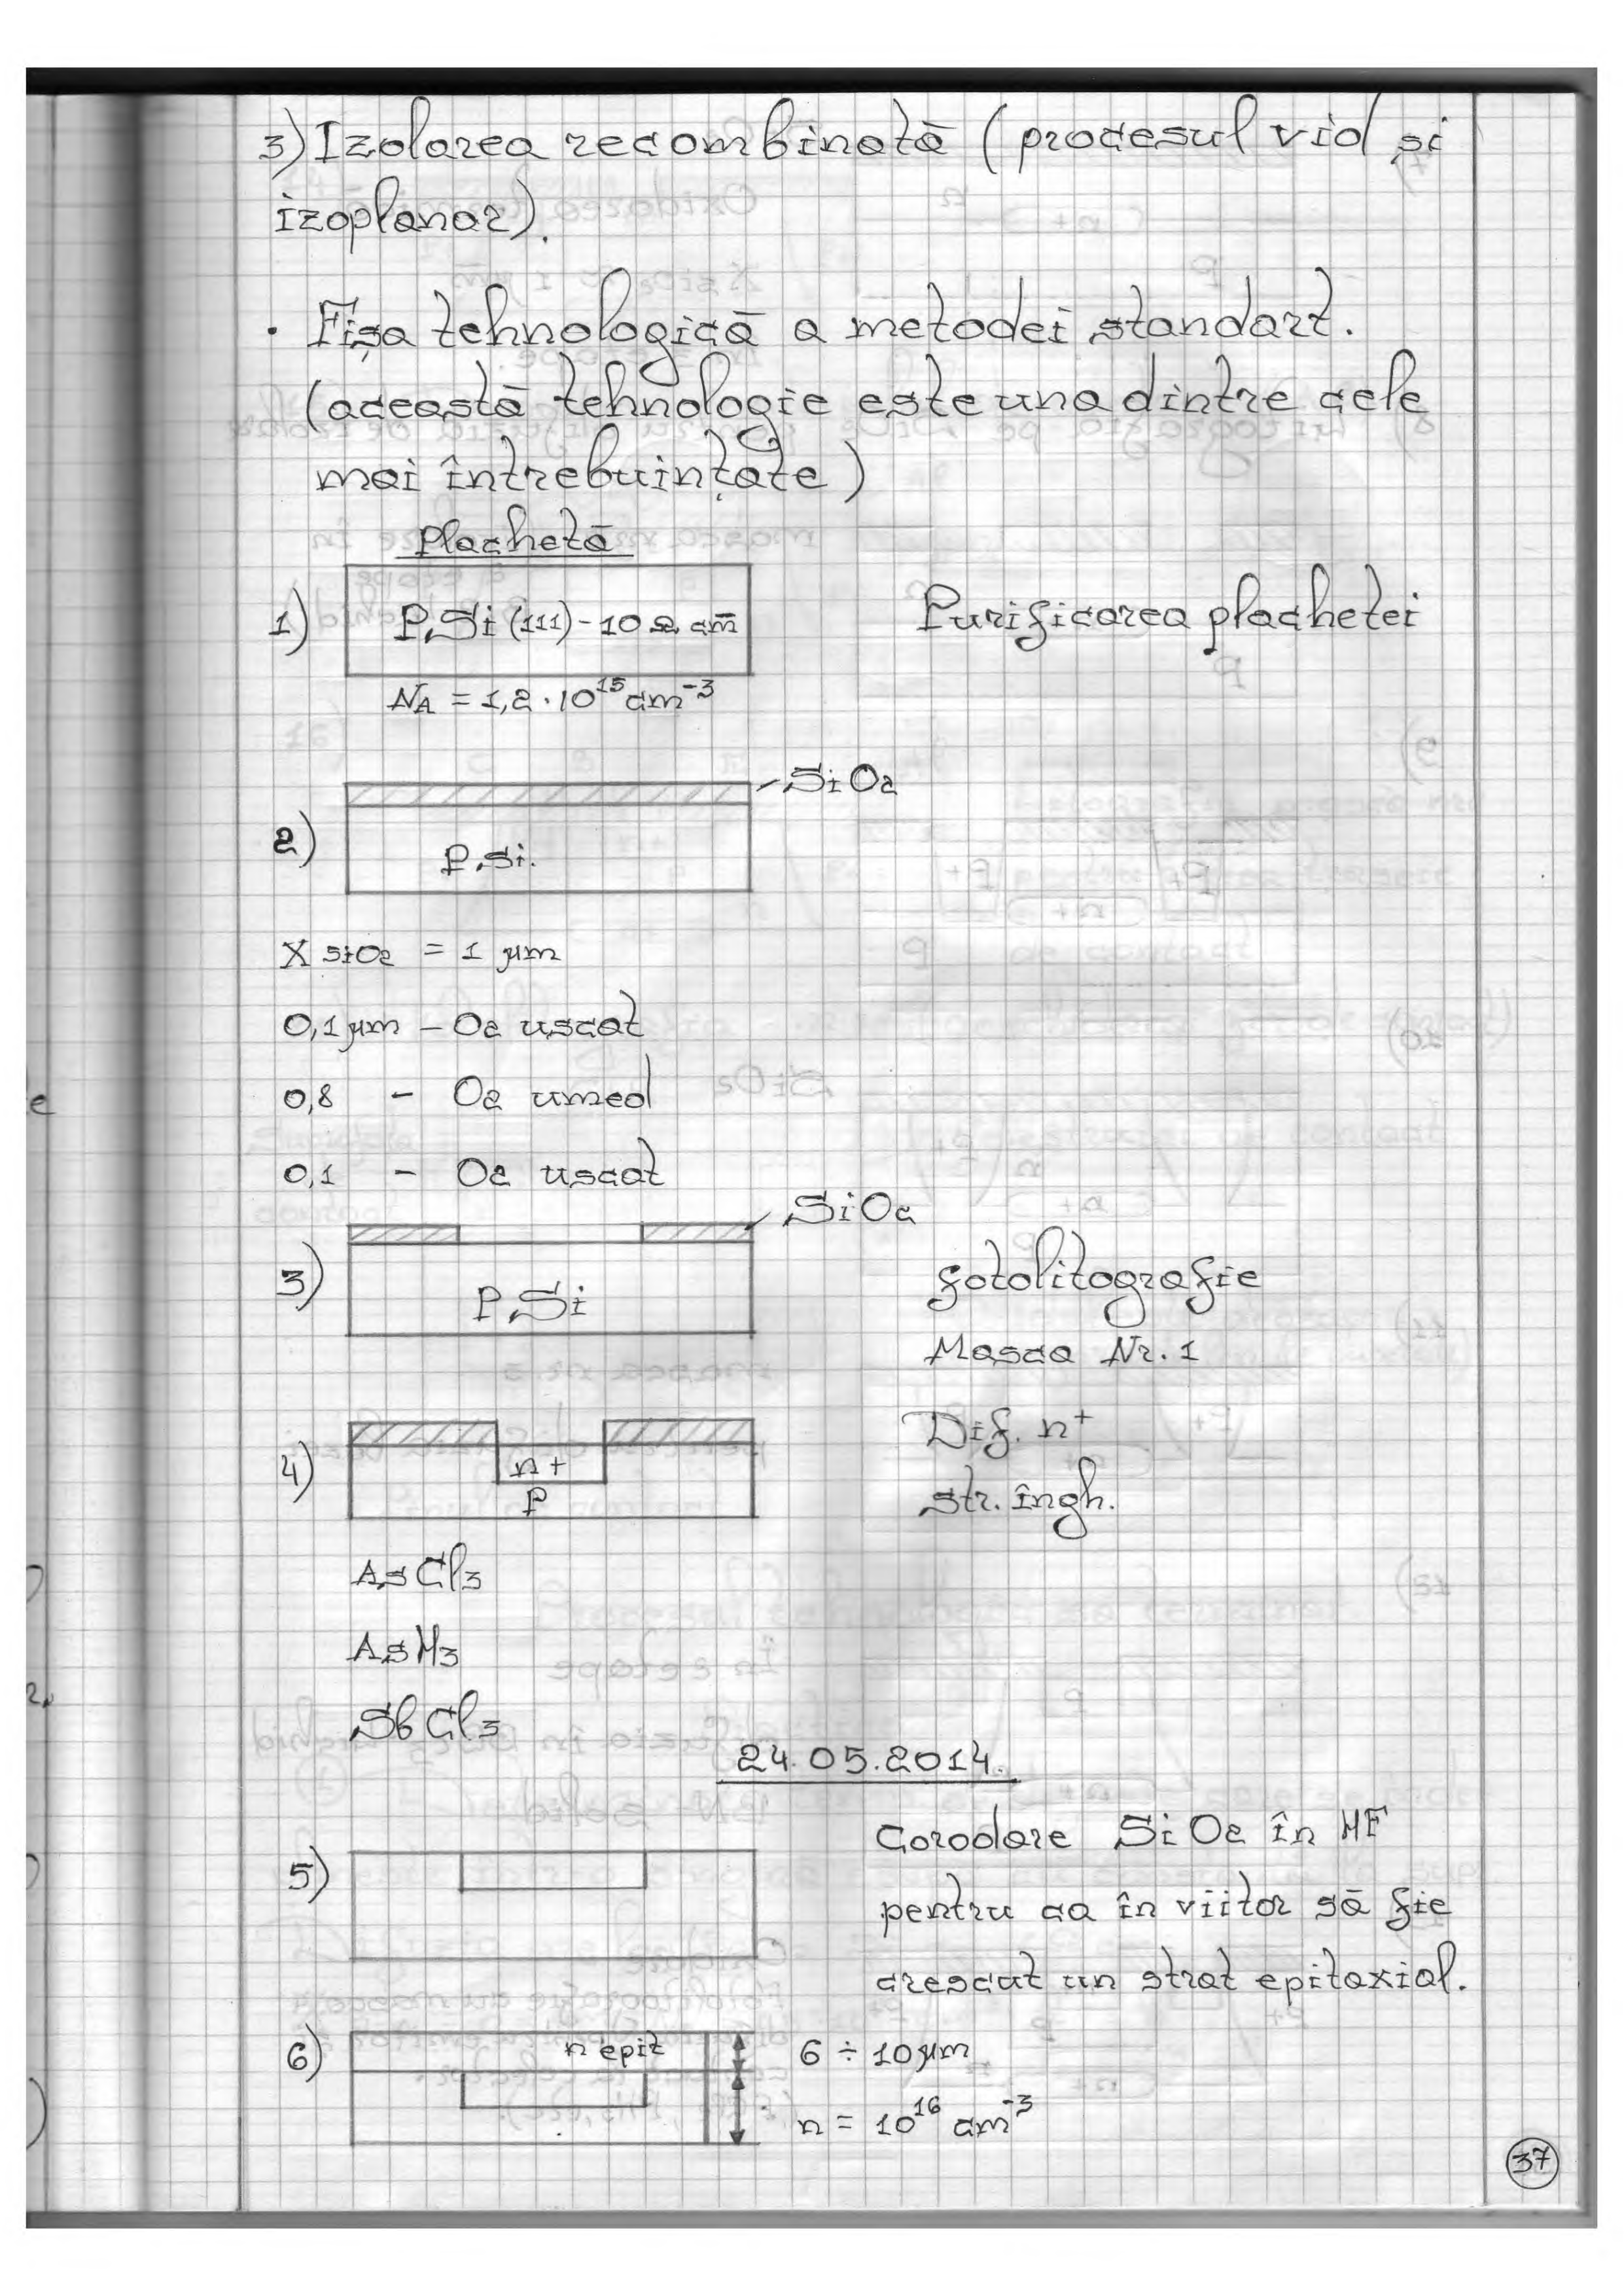 3) Izolarea recombinată (procesul vid și
izoplanar).
· Fișa tehnologică a metodei standart.
(această tehnologie este una dintre cele
mai întrebuințate)
Plachetă
1) P.Si (111) - 10 Ω cm
Purificarea plachetei
NA = 1,2 · 10^15 cm^-3
SiO2
2) P.Si.
X SiO2 = 1 μm
0,1 μm - O2 uscat
0,8 - O2 umed
0,1 - O2 uscat
SiO2
3) P.Si
fotolitografie
Masca Nr. 1
4) n+
P
Dif. n+
str. îngh.
AsCl3
AsH3
SbCl3
24.05.2014.
5) Corodare SiO2 în HF
pentru ca în viitor să fie
crescut un strat epitaxial.
6) n epit
6 ÷ 10 μm
n = 10^16 cm^-3
37